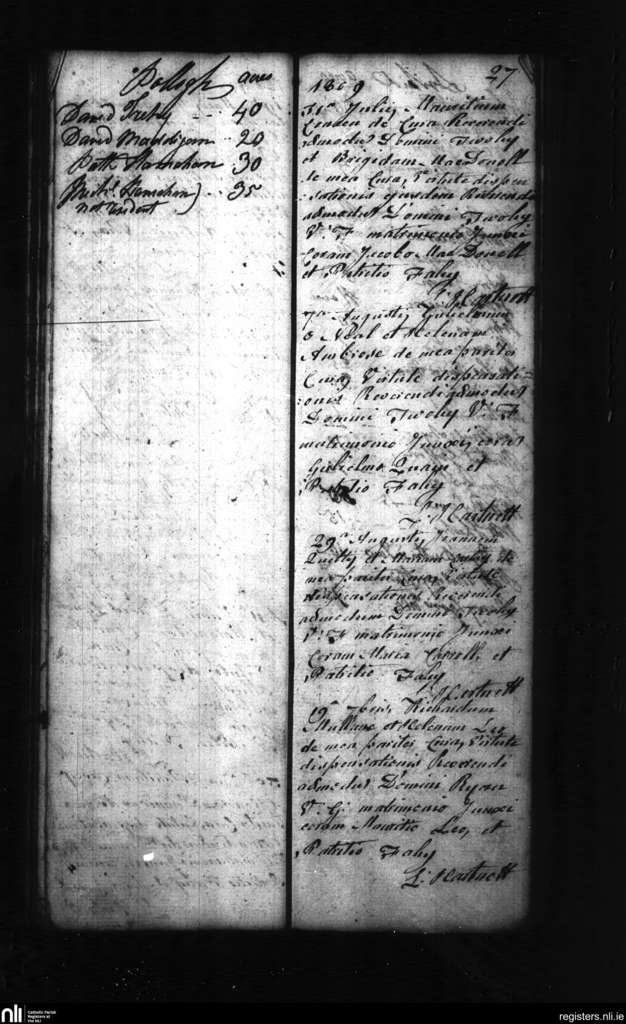 Pollogh acres
David Trehy - - 40
David Maddigan - - 20
Patk Hanrahan 30
Michl Hanrahan } - - 35
not resident
27
1809
31a Julij Mauritium
de Cura Reverendi
admodum Domini Twohy
et Brigidam MacDonell
de mea Cura, Virtute dispen
sationis ejusdem Reverendi
admodum Domini Twohy
V. F. matrimonio Junxi
Coram Jacobo MacDonell
et Patritio Fahy
J: Hartnett
7a Augustij Gulielmum
o Neal et Helenam
Ambrose de mea pariter
Cura, Virtute dispensati=
:onis Reverendi admodum
Domini Twohy V. F
matrimonio Junxi, coram
Gulielmo Quaye et
Patritio Fahy
J: Hartnett
29a Augustij
Quilty et Mariam de
mea pariter cura, Virtute
dispensationis Reverendi
admodum Domini Twohy
V. F matrimonio Junxi
Coram Maria Connell, et
Patritio Fahy
J: Hartnett
19a 7bris, Richardum
Mullane et Helenam Lee
de mea pariter Cura, Virtute
dispensationis Reverendi
admodum Domini Ryan
V. G. matrimonio Junxi
coram Mauritio Lee, et
Patritio Fahy
J: Hartnett
nli
Catholic Parish
Registers at
the NLI
registers.nli.ie